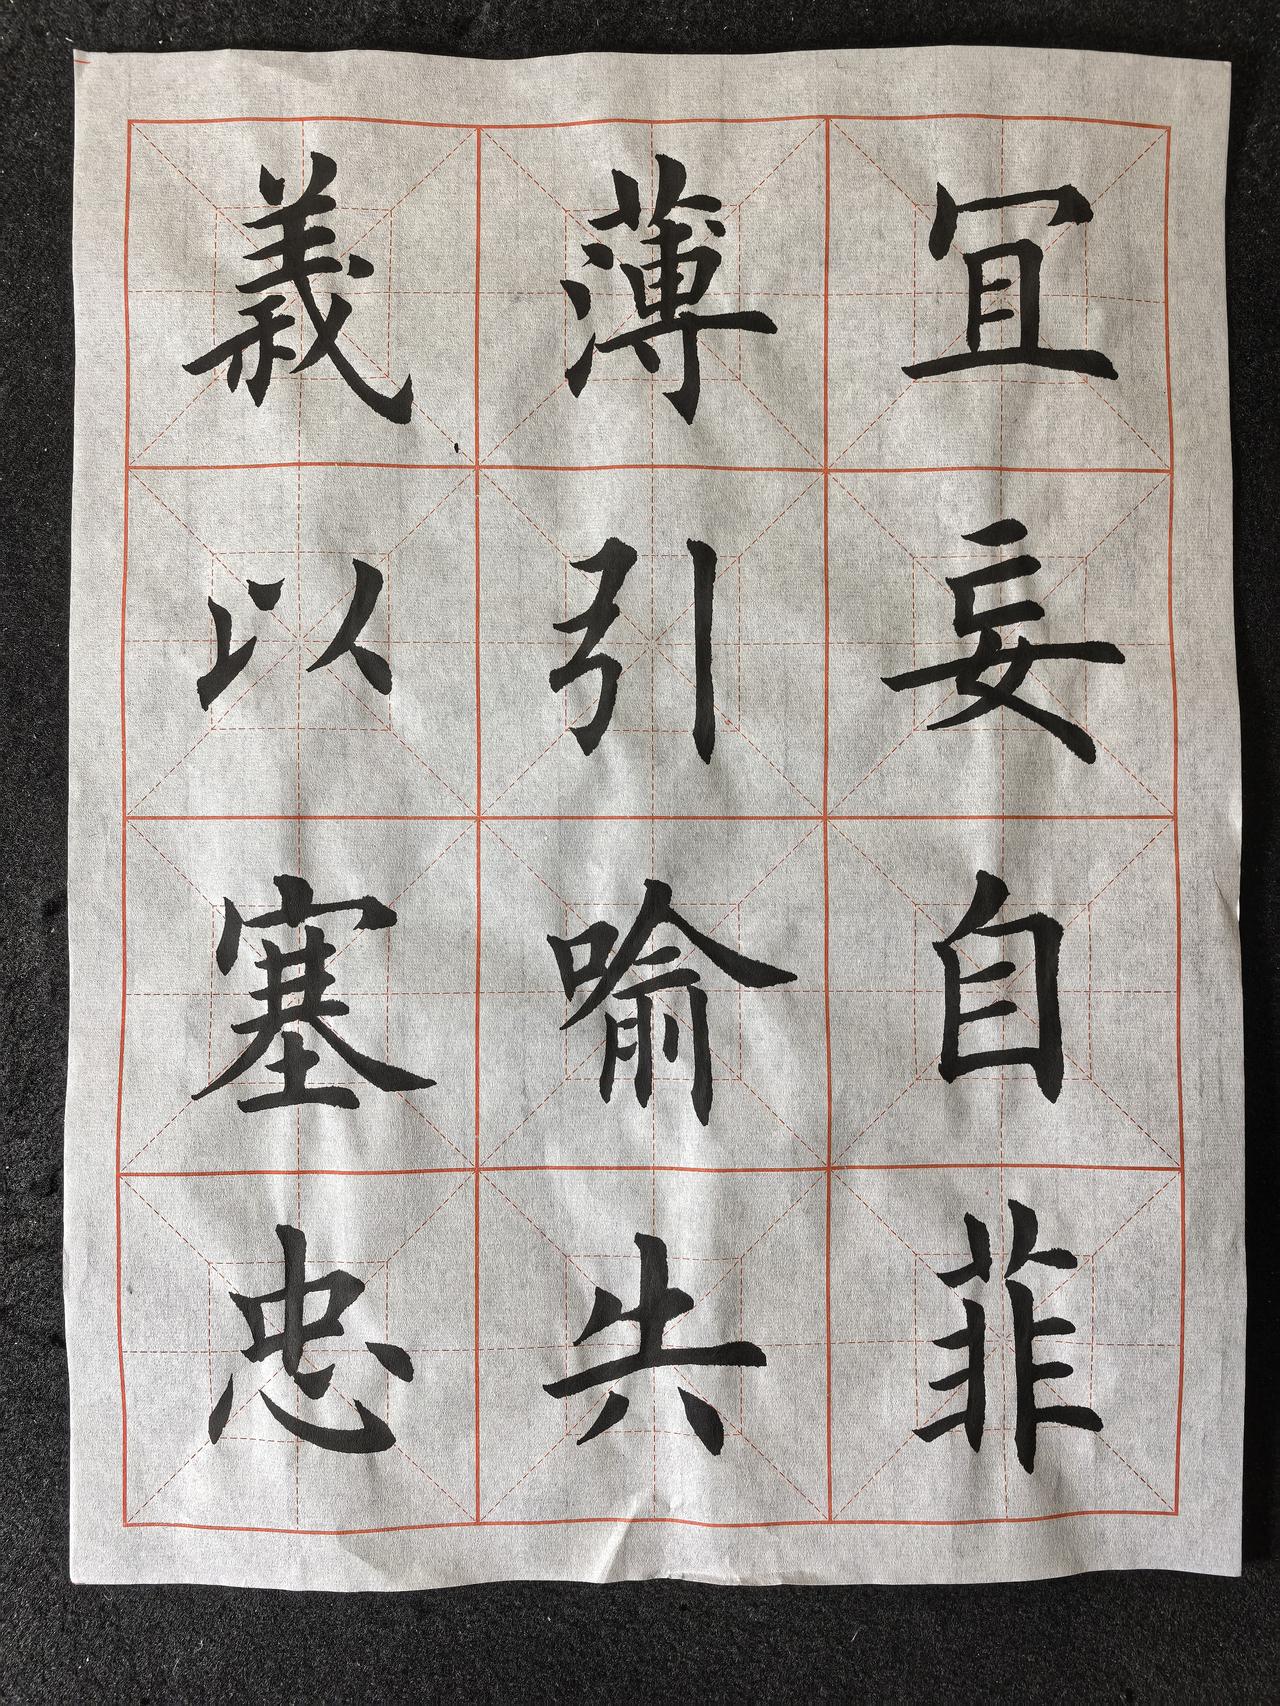 冝妄自菲
薄引喻失
義以塞忠